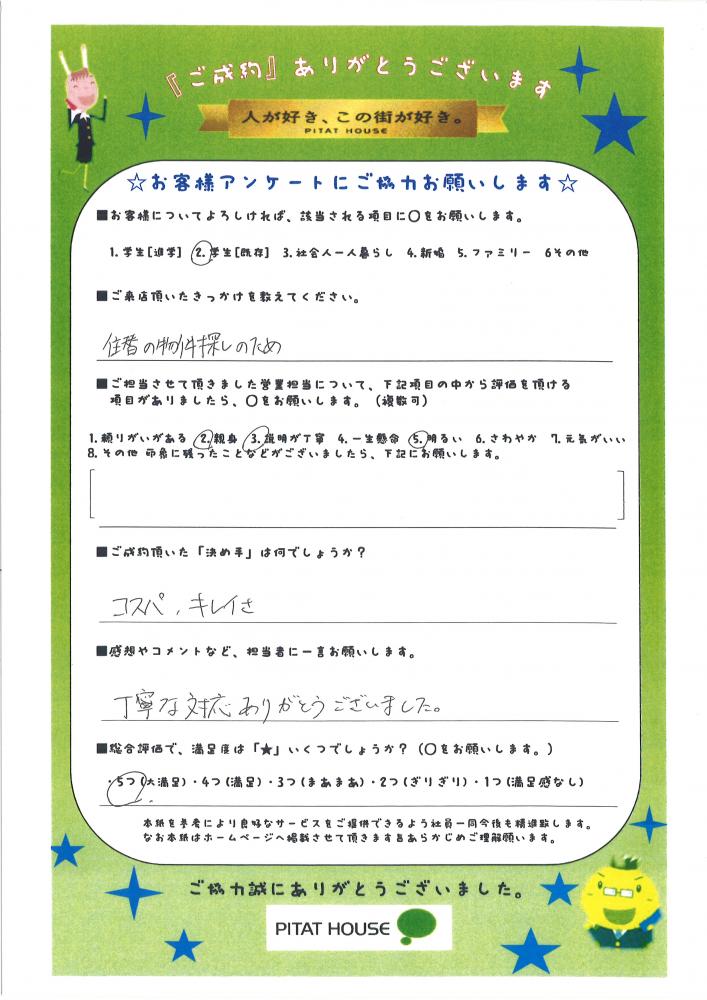 『ご成約』ありがとうございます
人が好き、この街が好き。
PITAT HOUSE
☆お客様アンケートにご協力お願いします☆
■お客様についてよろしければ、該当される項目に〇をお願いします。
1.学生[進学] 2.学生[既存] 3.社会人一人暮らし 4.新婚 5.ファミリー 6その他
■ご来店頂いたきっかけを教えてください。
住替の物件探しのため
■ご担当させて頂きました営業担当について、下記項目の中から評価を頂ける
項目がありましたら、〇をお願いします。（複数可）
1.頼りがいがある 2.親身 3.説明が丁寧 4.一生懸命 5.明るい 6.さわやか 7.元気がいい
8.その他 印象に残ったことなどがございましたら、下記にお願いします。
■ご成約頂いた「決め手」は何でしょうか？
コスパ、キレイさ
■感想やコメントなど、担当者に一言お願いします。
丁寧な対応ありがとうございました。
■総合評価で、満足度は「★」いくつでしょうか？（〇をお願いします。）
・5つ(大満足)・4つ(満足)・3つ(まあまあ)・2つ(ぎりぎり)・1つ(満足感なし)
本紙を参考により良好なサービスをご提供できるよう社員一同今後も精進致します。
なお本紙はホームページへ掲載させて頂きます旨あらかじめご理解願います。
ご協力誠にありがとうございました。
PITAT HOUSE